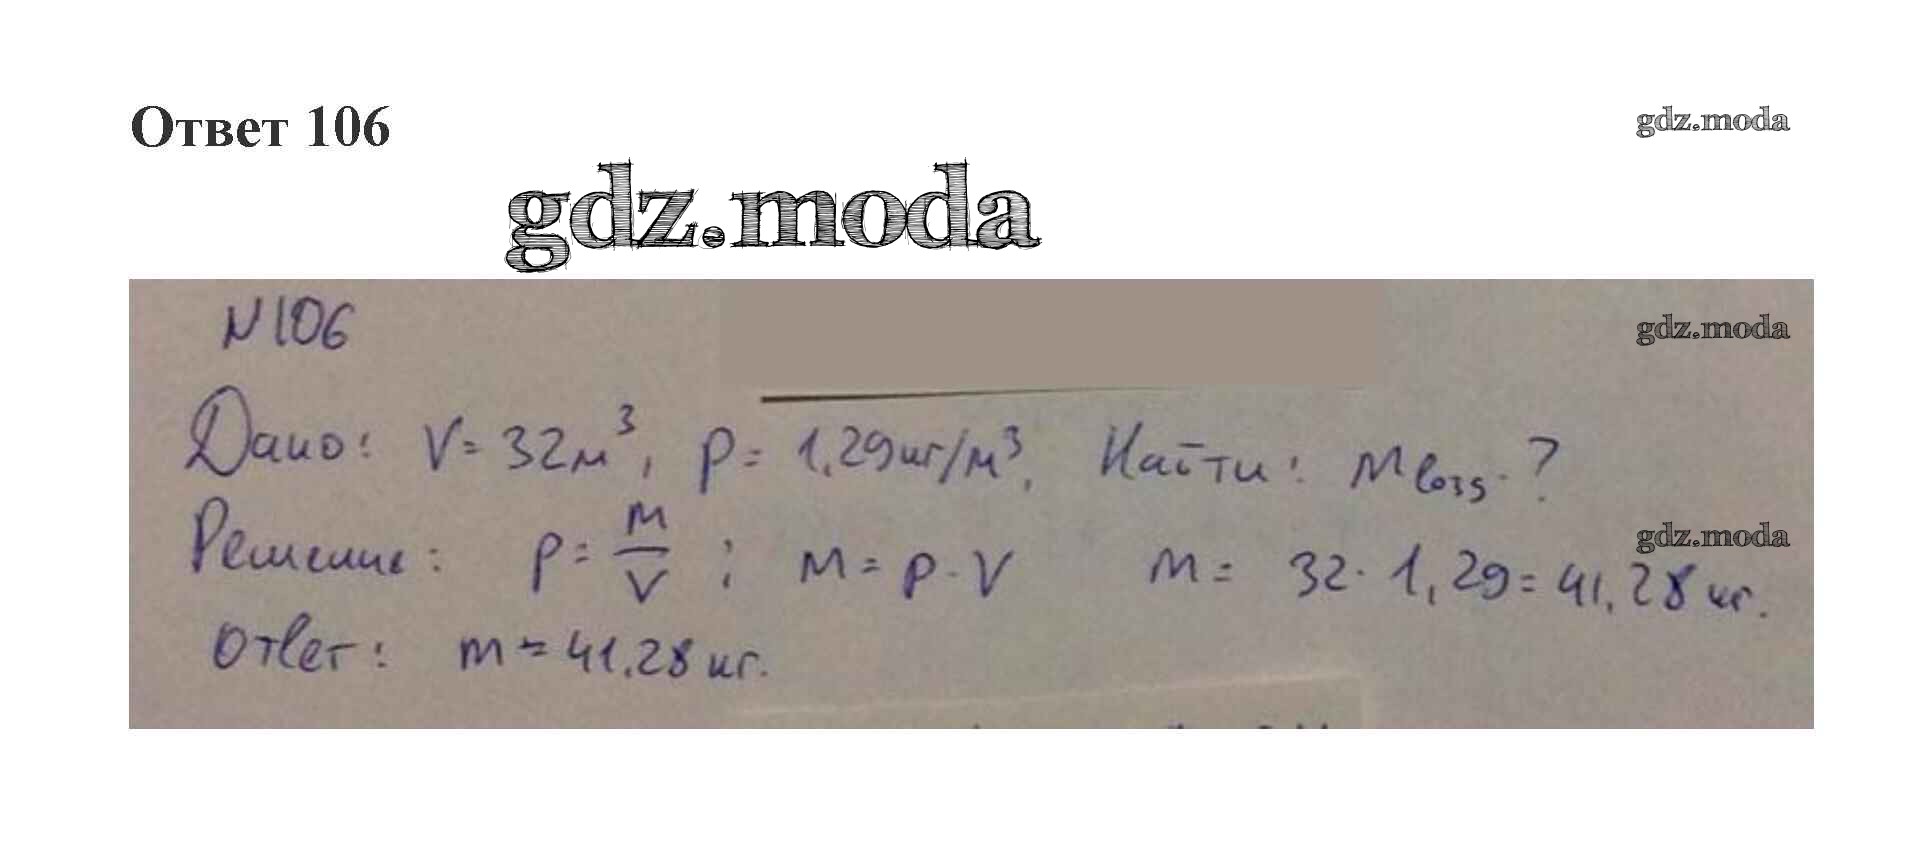 Ответ 106
gdz.moda
gdz.moda
N106
gdz.moda
Дано: V = 32м³, p = 1,29кг/м³. Найти: m возд. ?
Решение: p = m/V ; m = p · V m = 32 · 1,29 = 41,28 кг.
gdz.moda
Ответ: m = 41,28 кг.